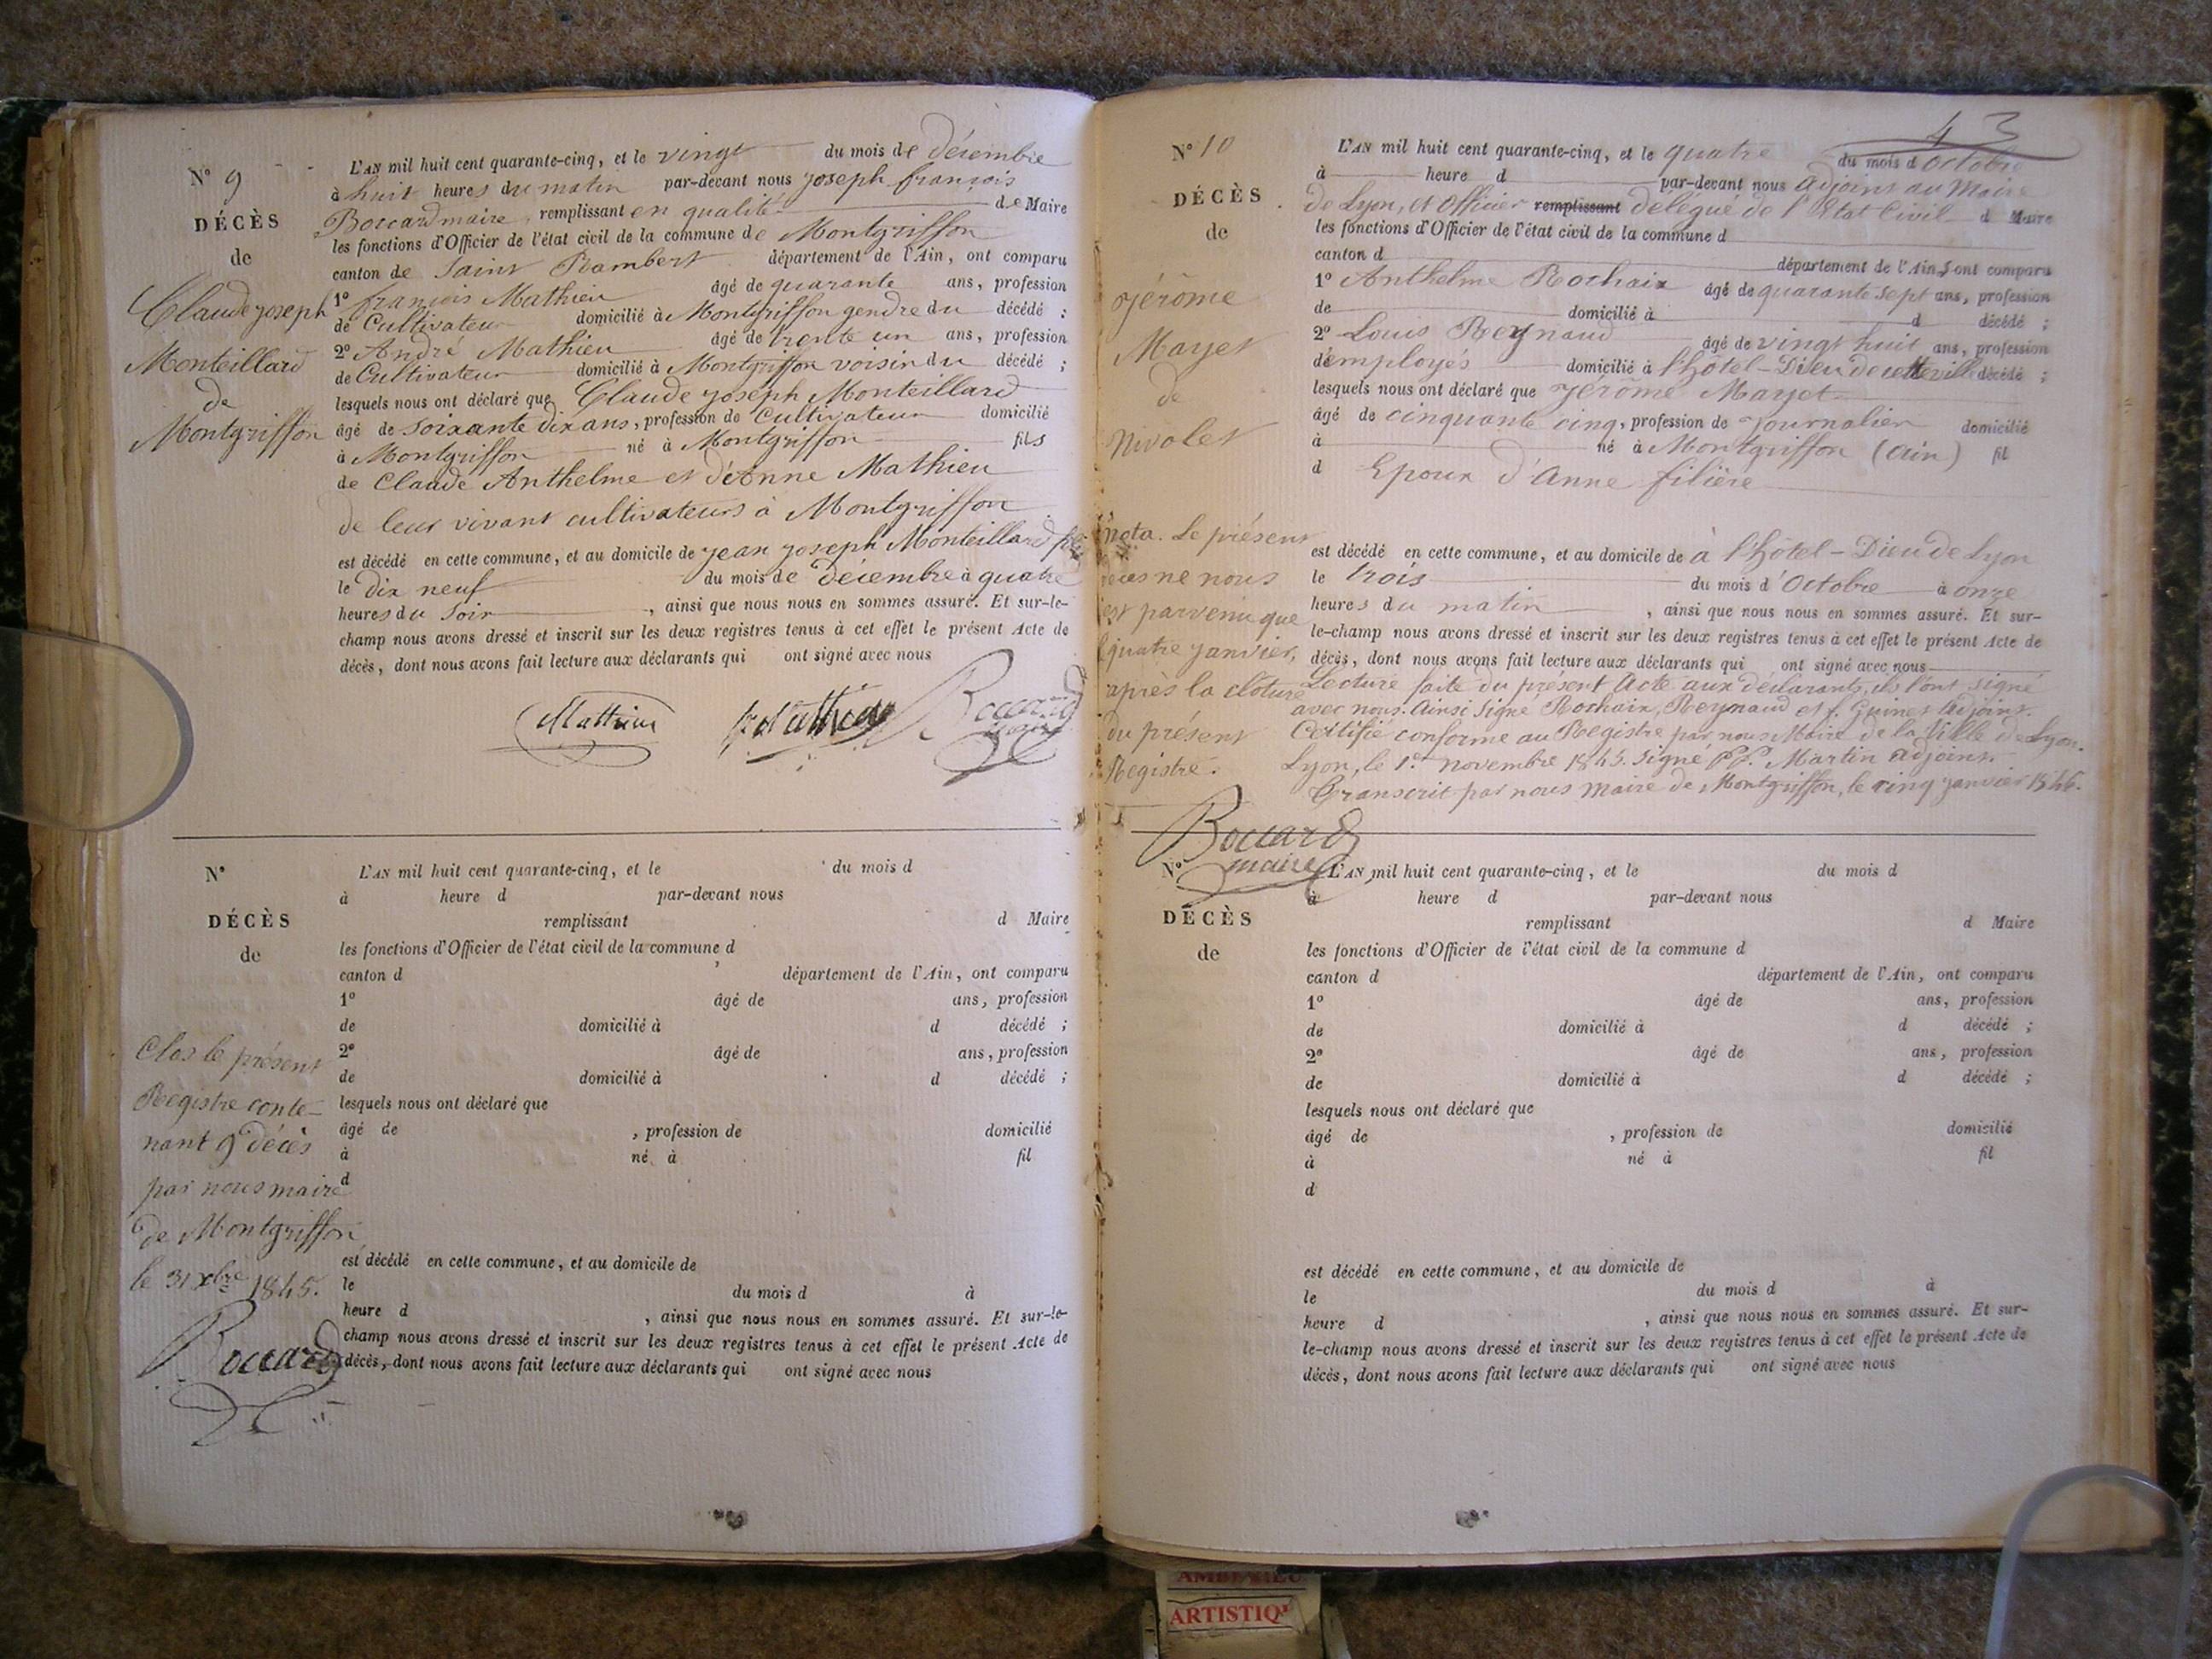 N° 9
DÉCÈS
de
Claude joseph
Monteillard
de
Montgriffon
L'AN mil huit cent quarante-cinq, et le vingt du mois de décembre
à huit heures du matin par-devant nous joseph françois
Boccard maire, remplissant en qualité de Maire
les fonctions d'Officier de l'état civil de la commune de Montgriffon
canton de Saint Rambert département de l'Ain, ont comparu
1° françois Mathieu âgé de quarante ans, profession
de Cultivateur domicilié à Montgriffon gendre du décédé ;
2° André Mathieu âgé de trente un ans, profession
de Cultivateur domicilié à Montgriffon voisin du décédé ;
lesquels nous ont déclaré que Claude joseph Monteillard
âgé de soixante dix ans, profession de Cultivateur domicilié
à Montgriffon né à Montgriffon fils
de Claude Anthelme et d'Anne Mathieu
de leur vivant cultivateurs à Montgriffon
est décédé en cette commune, et au domicile de jean joseph Monteillard fils
le dix neuf du mois de décembre à quatre
heures du soir, ainsi que nous nous en sommes assuré. Et sur-le-
champ nous avons dressé et inscrit sur les deux registres tenus à cet effet le présent Acte de
décès, dont nous avons fait lecture aux déclarants qui ont signé avec nous
Mathieu Mathieu Boccard
maire
N°
DÉCÈS
de
L'AN mil huit cent quarante-cinq, et le du mois d
à heure d par-devant nous
remplissant d Maire
les fonctions d'Officier de l'état civil de la commune d
canton d département de l'Ain, ont comparu
1° âgé de ans, profession
de domicilié à d décédé ;
2° âgé de ans, profession
de domicilié à d décédé ;
lesquels nous ont déclaré que
âgé de , profession de domicilié
à né à fil
d
est décédé en cette commune, et au domicile de
le du mois d à
heure d , ainsi que nous nous en sommes assuré. Et sur-le-
champ nous avons dressé et inscrit sur les deux registres tenus à cet effet le présent Acte de
décès, dont nous avons fait lecture aux déclarants qui ont signé avec nous
Clos le présent
Registre conte-
nant 9 décès
par nous maire
de Montgriffon
le 31 xbre 1845.
Boccard
43
N° 10
DÉCÈS
de
jérôme
Mayet
de
nivolet
L'AN mil huit cent quarante-cinq, et le quatre du mois d octobre
à heure d par-devant nous adjoint au Maire
de Lyon, et Officier remplissant délégué de l'Etat Civil d Maire
les fonctions d'Officier de l'état civil de la commune d
canton d département de l'Ain, ont comparu
1° Anthelme Rochaix âgé de quarante sept ans, profession
de domicilié à d décédé ;
2° Louis Reynaud âgé de vingt huit ans, profession
d'employés domicilié à l'hôtel-Dieu de cette ville décédé ;
lesquels nous ont déclaré que jérôme Mayet
âgé de cinquante cinq, profession de journalier domicilié
à né à Montgriffon (ain) fil
d Epoux d'Anne filière
est décédé en cette commune, et au domicile de à l'hôtel-Dieu de Lyon
le trois du mois d'Octobre à onze
heures du matin, ainsi que nous nous en sommes assuré. Et sur-
le-champ nous avons dressé et inscrit sur les deux registres tenus à cet effet le présent Acte de
décès, dont nous avons fait lecture aux déclarants qui ont signé avec nous
Lecture faite du présent Acte aux déclarants, ils l'ont signé
avec nous. Ainsi Signé Rochaix, Reynaud et f. Guinet adjoint.
Certifié conforme au Registre par nous Maire de la Ville de Lyon.
Lyon, le 1er novembre 1845. Signé Martin adjoint.
Transcrit par nous maire de Montgriffon, le cinq janvier 1846.
nota. Le présent
décès ne nous
est parvenu que
quatre janvier,
après la clôture
du présent
Registre.
Boccard
maire
N°
DÉCÈS
de
L'AN mil huit cent quarante-cinq, et le du mois d
à heure d par-devant nous
remplissant d Maire
les fonctions d'Officier de l'état civil de la commune d
canton d département de l'Ain, ont comparu
1° âgé de ans, profession
de domicilié à d décédé ;
2° âgé de ans, profession
de domicilié à d décédé ;
lesquels nous ont déclaré que
âgé de , profession de domicilié
à né à fil
d
est décédé en cette commune, et au domicile de
le du mois d à
heure d , ainsi que nous nous en sommes assuré. Et sur-
le-champ nous avons dressé et inscrit sur les deux registres tenus à cet effet le présent Acte de
décès, dont nous avons fait lecture aux déclarants qui ont signé avec nous
ARTISTIQ